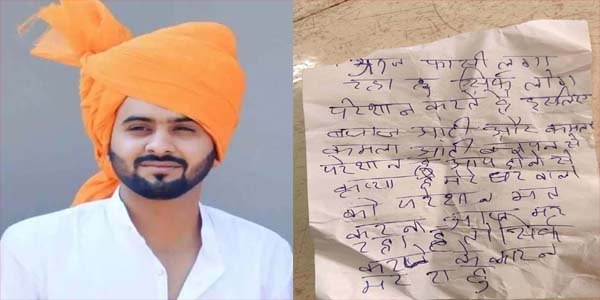 आज फासी लगा
रहा हु सिर्फ लोग
परेशान करते है इसलिए
बजाज आटी और कमला
कमला आटी के
परेशान हु आप लोगो से
है मेरे घर वाले
को परेशान मत
करना आज मर
रहा हु तो सिर्फ
के कारन
मर रा हु